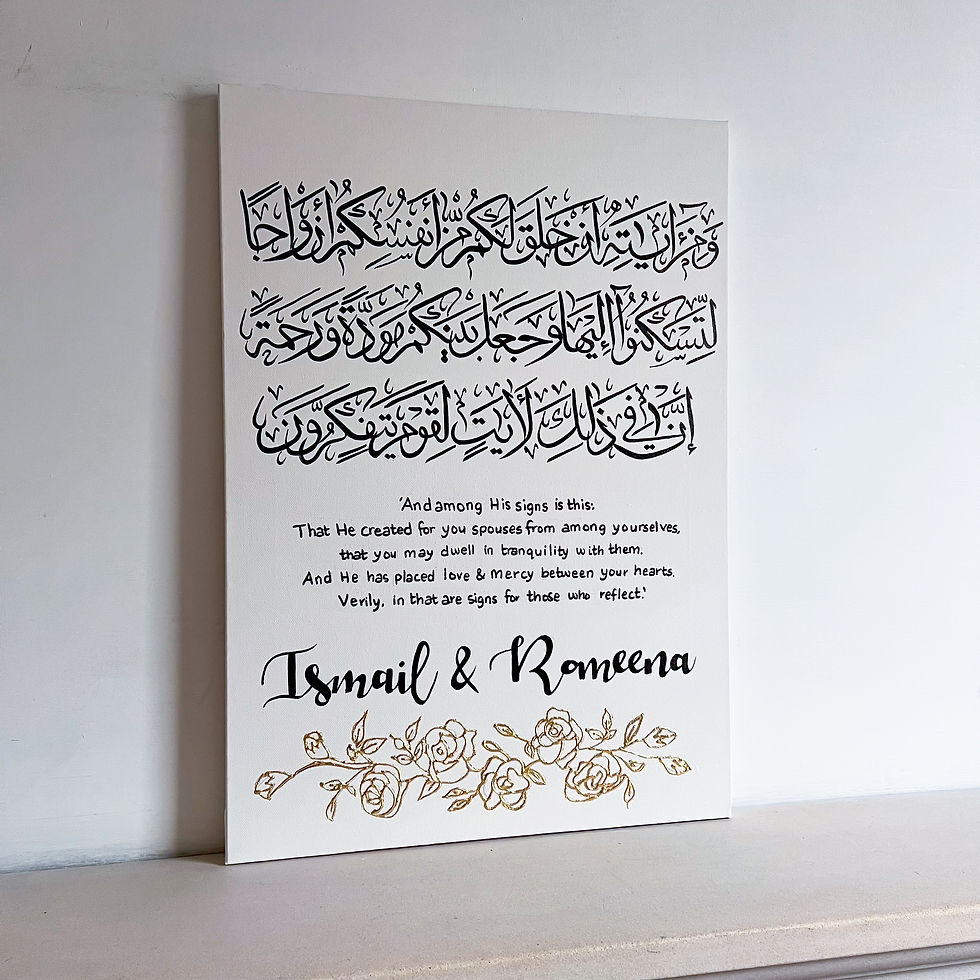 وَمِنْ آيَاتِهِ أَنْ خَلَقَ لَكُم مِّنْ أَنفُسِكُمْ أَزْوَاجًا
لِّتَسْكُنُوا إِلَيْهَا وَجَعَلَ بَيْنَكُم مَّوَدَّةً وَرَحْمَةً
إِنَّ فِي ذَٰلِكَ لَآيَاتٍ لِّقَوْمٍ يَتَفَكَّرُونَ
'And among His signs is this:
That He created for you spouses from among yourselves,
that you may dwell in tranquility with them.
And He has placed love & mercy between your hearts.
Verily, in that are signs for those who reflect.'
Ismail & Rameena